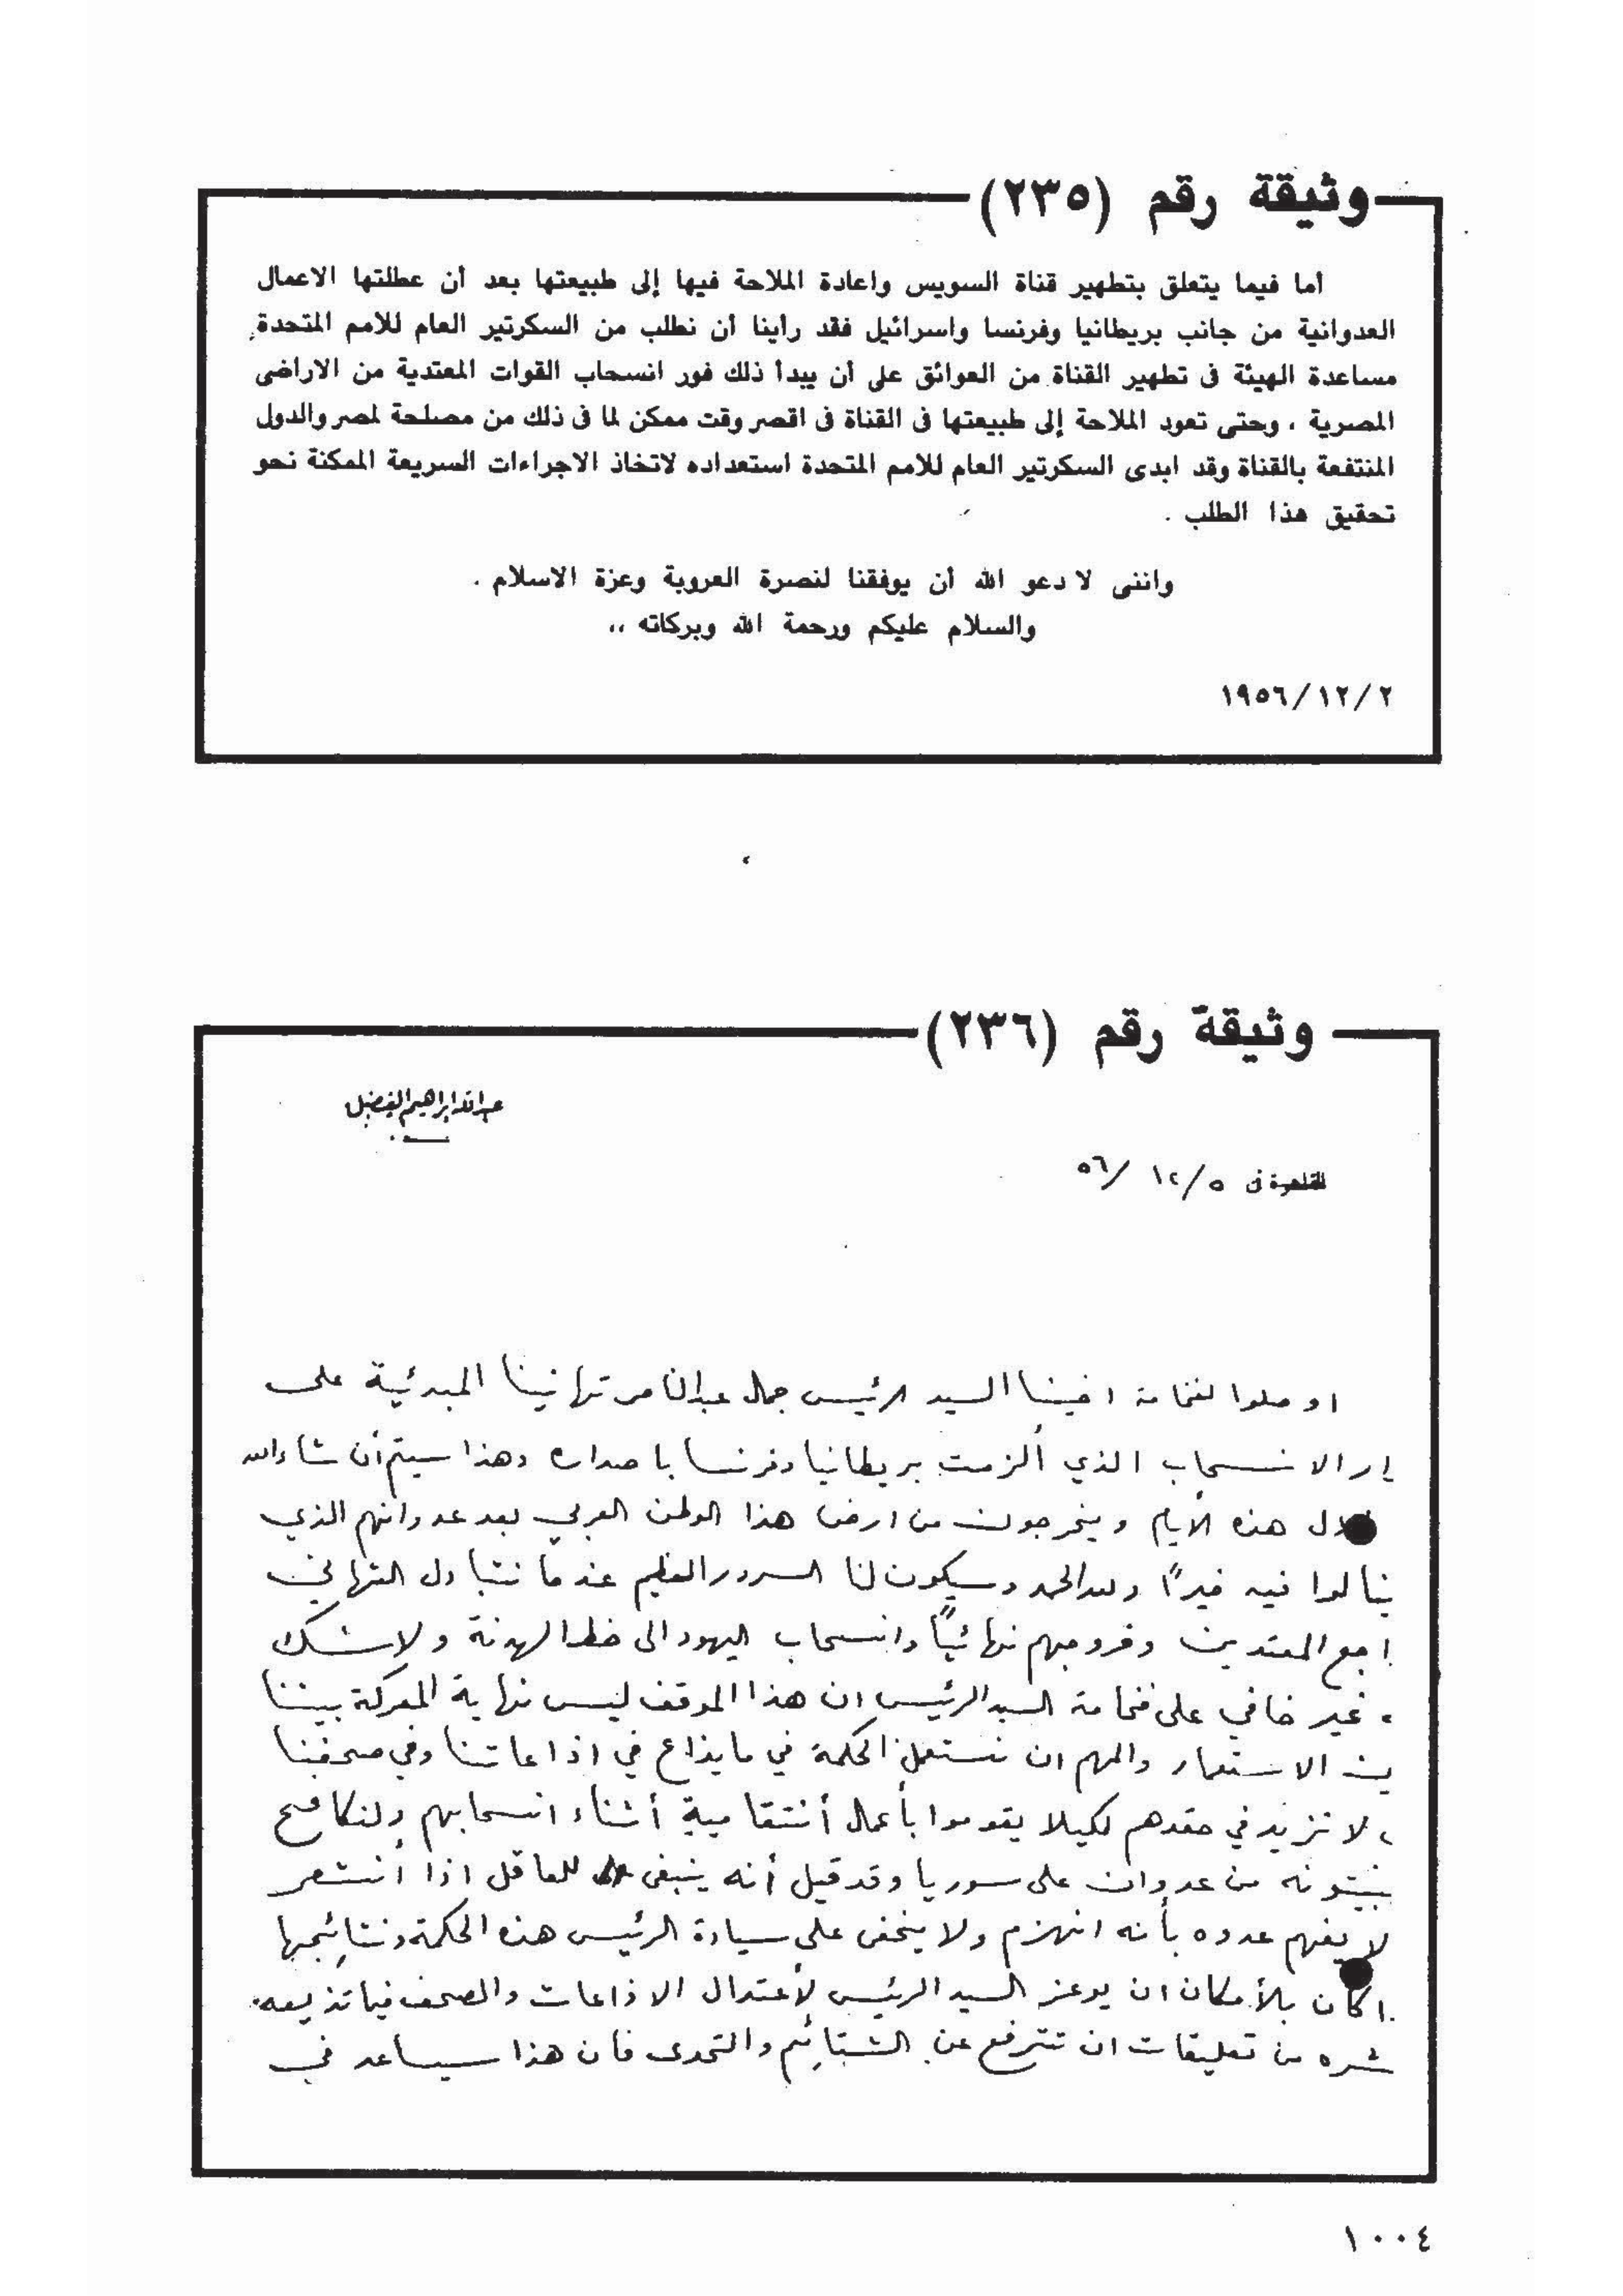 وثيقة رقم (٢٣٥)
أما فيما يتعلق بتطهير قناة السويس واعادة الملاحة فيها إلى طبيعتها بعد أن عطلتها الاعمال
العدوانية من جانب بريطانيا وفرنسا واسرائيل فقد رأينا أن نطلب من السكرتير العام للأمم المتحدة
مساعدة الهيئة فى تطهير القناة من العوائق على أن يبدأ ذلك فور انسحاب القوات المعتدية من الاراضى
المصرية ، وحتى تعود الملاحة إلى طبيعتها فى القناة فى اقصر وقت ممكن لما فى ذلك من مصلحة لمصر والدول
المنتفعة بالقناة وقد ابدى السكرتير العام للأمم المتحدة استعداده لاتخاذ الاجراءات السريعة الممكنة نحو
تحقيق هذا الطلب .
واننى لا دعو الله أن يوفقنا لنصرة العروبة وعزة الاسلام .
والسلام عليكم ورحمة الله وبركاته ،،
١٩٥٦/١٢/٢
وثيقة رقم (٢٣٦)
عبدالله ابراهيم الفضيل
القاهرة فى ٥/١٢/٥٦
اوصلوا لفخامة اخينا السيد الرئيس جمال عبدالناصر تهانينا المبدئية على
رار الانسحاب الذي ألزمت بريطانيا وفرنسا باصداره وهذا سيتم أن شاءالله
لال هذه الأيام ويخرجون من ارض هذا الوطن العربي بعد عدوانهم الذي
ينالوا فيه خيراً ولله الحمد وسيكون لنا السرور العظيم عندما نتبادل التهاني
اجع المعتدين وخروجهم نهائياً وانسحاب اليهود الى خط الهدنة ولاشك
غير خافي على فخامة السيد الرئيس ان هذا الموقف ليس نهاية المعركة بيننا
ين الاستعمار والمهم ان نستعمل الحكمة في ما يذاع في اذاعاتنا وفي صحفنا
لا نزيد في حقدهم لكيلا يقوموا بأعمال أنتقامية أثناء انسحابهم ولنكافح
يبيتونه من عدوان على سوريا وقد قيل أنه ينبغى للعاقل اذا أنتصر
لا يفهم عدوه بأنه انهزم ولا يخفى على سيادة الرئيس هذه الحكمة ونتائجها
اكان بالأمكان ان يوعز السيد الرئيس لأعتدال الاذاعات والصحف فيما تذيعه
شره من تعليقات ان تترفع عن الشتائم والتحدى فان هذا سيساعد في
١٠٠٤